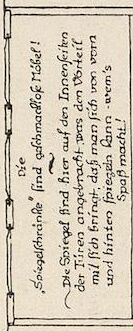 Die
„Spiegelschränke" sind geschmacklose Möbel!
Die Spiegel sind hier auf den Innenseiten
der Türen angebracht, was den Vorteil
mit sich bringt, daß man sich von vorn
und hinten spiegeln kann, wem's
Spaß macht!